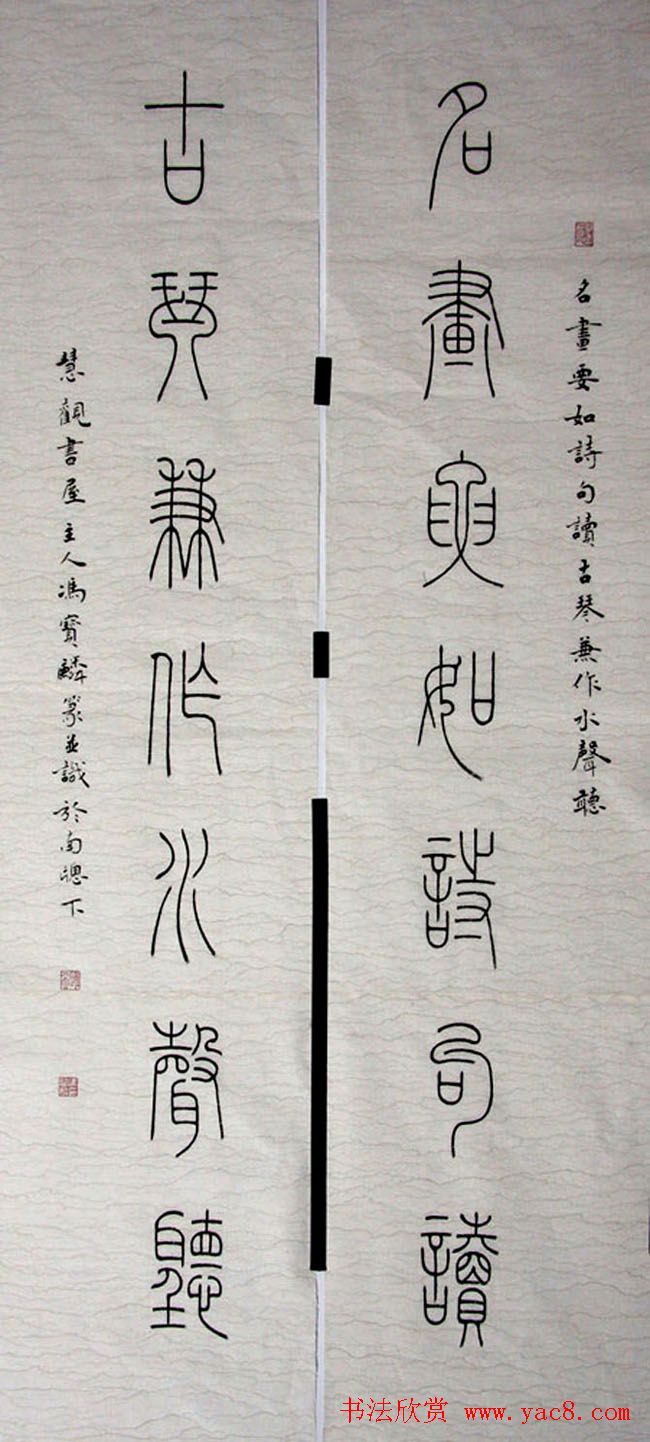 名畫要如詩句讀古琴兼作水聲聽
名畫要如詩句讀
古琴兼作水聲聽
慧觀書屋主人馮寶麟篆並識於南窗下
书法欣赏 www.yac8.com